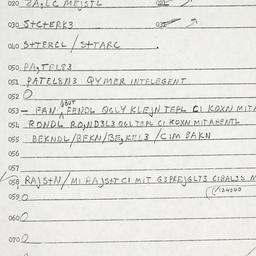 020 ZA,LC MEJSTL
030 S+C+ERK3
040 S++ERCL / S++ARC
050 PA,TELS3
051 PATELSN3 QYMER INTELEGENT
052 0
053 - FAN FENDL QCLY KLEJN TEPL CI KOXN MITA
054 RONDL RO,ND3L3 QCL TEPL CI KOXN MITAHENTL
055 BEKNDL/BEKN/BE,KEL3 / CIM SAKN
056
057
058 RAJS+N/MI RAJS+T CI MIT G3PREJGLT3 CIBALJS
124040
059 0
060 0
070 0